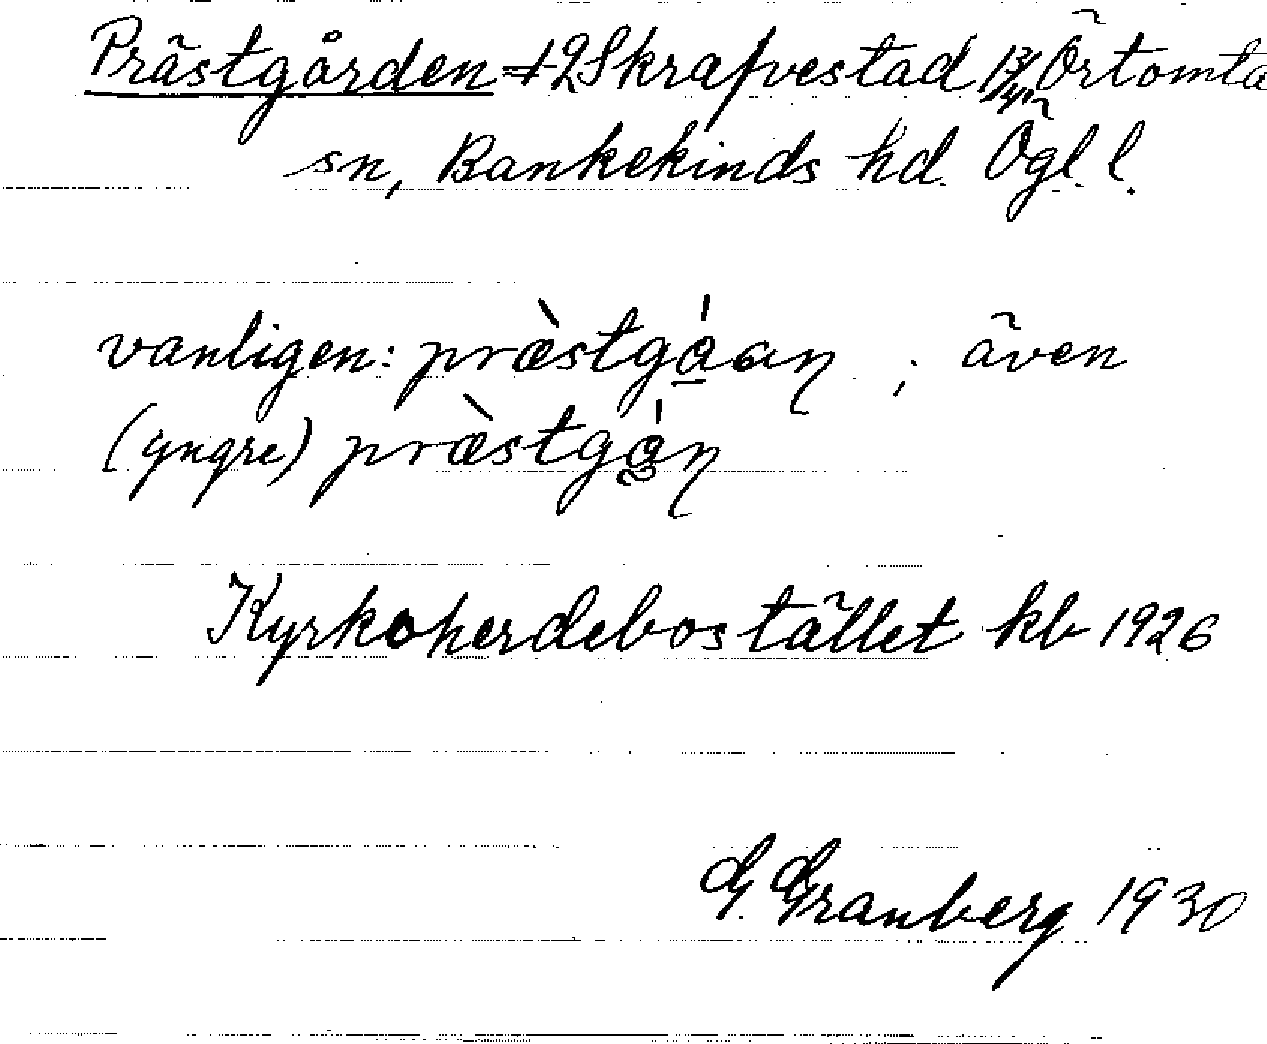 Prästgården = 12 Skrafvestad Örtomta
sn, Bankekinds hd. Ögl. l.
vanligen: præ̀stgáan ; även
(yngre) præ̀stgán
Kyrkoherdebostället kb 1926
G. Granberg 1930